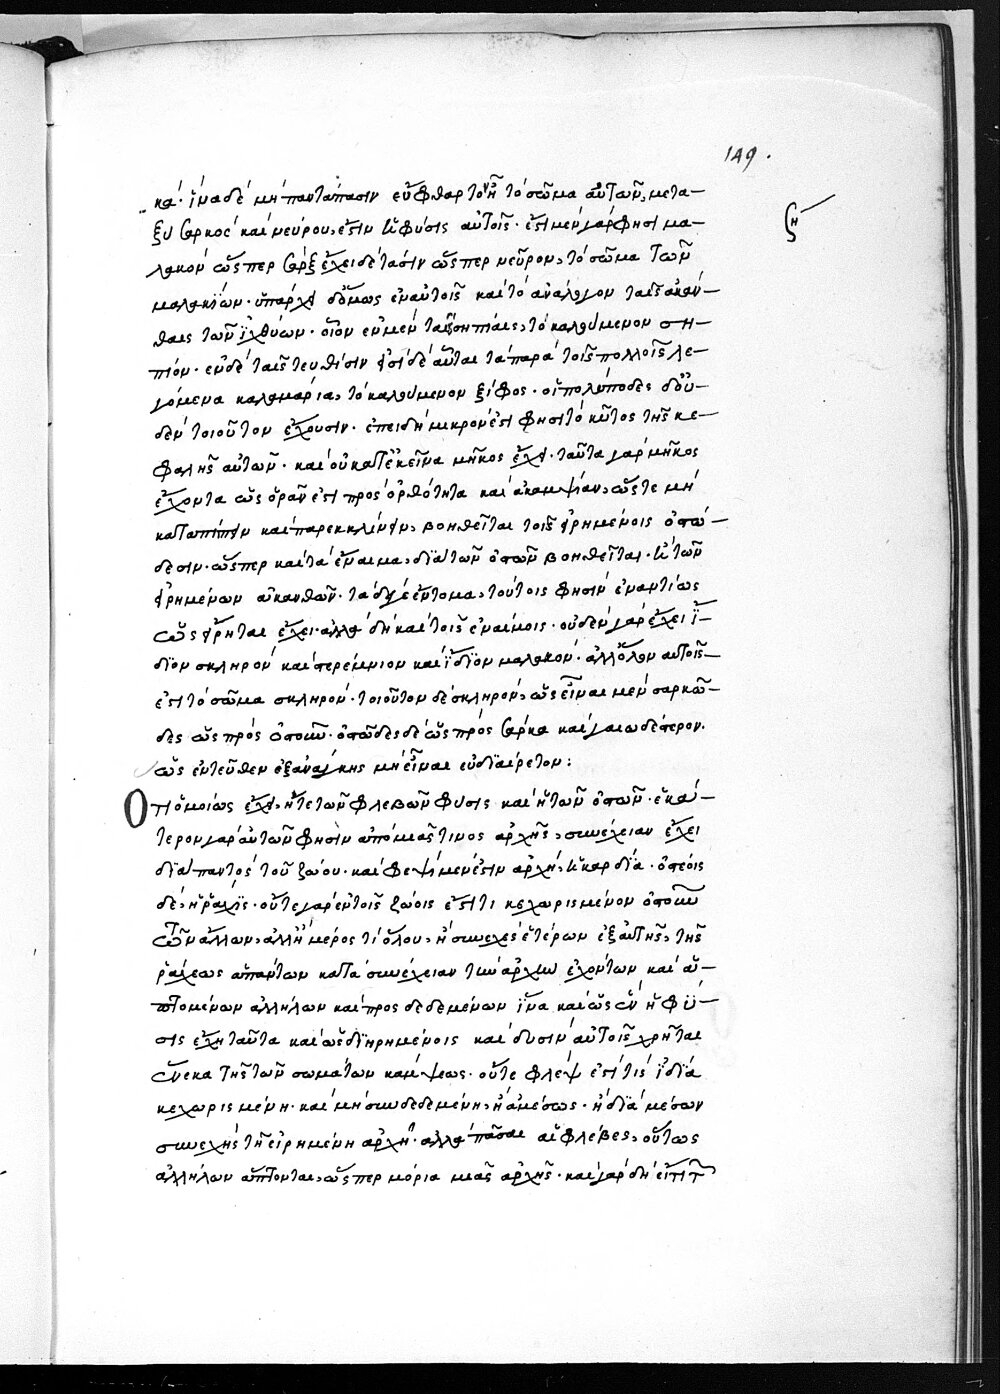 149.
κά· ἵνα δὲ μὴ παντάπασιν εὔφθαρτον ᾖ τὸ σῶμα αὐτῶν, μετα-
ξὺ σαρκὸς καὶ νεύρου, ἔστιν ἡ φύσις αὐτοῖς· ἔστι μὲν γάρ φησι μα-
λακὸν ὥσπερ σάρξ ἔχει δὲ τάσιν ὥσπερ νεῦρον, τὸ σῶμα τῶν
μαλακίων· ὑπάρχει δ' ὅμως ἐν αὐτοῖς καὶ τὸ ἀνάλογον ταῖς ἀκάν-
θαις τῶν ἰχθύων· οἷον ἐν μὲν ταῖς σηπίαις, τὸ καλούμενον ση-
πίον· ἐν δὲ ταῖς τευθίσιν εἰσὶ δὲ αὗται τὰ παρὰ τοῖς πολλοῖς λε-
γόμενα καλαμάρια, τὸ καλούμενον ξίφος· οἱ πολύποδες δ' οὐ-
δὲν τοιοῦτον ἔχουσιν· ἐπειδὴ μικρόν ἐστί φησι τὸ κῦτος τῆς κε-
φαλῆς αὐτῶν· καὶ οὐ κατ' ἐκεῖνα μῆκος ἔχει· ταῦτα γὰρ μῆκος
ἔχοντα ὡς ὁρᾶν ἐστι πρὸς ὀρθότητα καὶ ἀκαμψίαν, ὥστε μὴ
καταπίπτειν καὶ παρεκκλίνειν, βοηθεῖται τοῖς εἰρημένοις ὀστώ-
δεσιν· ὥσπερ καὶ τὰ ἔναιμα, διὰ τῶν ὀστῶν βοηθεῖται· ἢ τῶν
εἰρημένων ἀκανθῶν· τὰ δέ γε ἔντομα, τούτοις φησὶν ἐναντίως
ὡς εἴρηται ἔχει· ἀλλὰ δὴ καὶ τοῖς ἐναίμοις· οὐδὲν γὰρ ἔχει ἴ-
διον σκληρὸν καὶ στερέμνιον καὶ ἴδιον μαλακόν· ἀλλ' ὅλον αὐτοῖς
ἐστι τὸ σῶμα σκληρόν· τοιοῦτον δὲ σκληρόν, ὡς εἶναι μὲν σαρκῶ-
δες ὡς πρὸς ὀστοῦν· ὀστῶδες δὲ ὡς πρὸς σάρκα καὶ γαιωδέστερον·
ὡς ἐντεῦθεν ἐξανάγκης μὴ εἶναι εὐδιαίρετον:
Ὅτι ὁμοίως ἔχει, ἥ τε τῶν φλεβῶν φύσις καὶ ἡ τῶν ὀστῶν· ἑκά-
τερον γὰρ αὐτῶν φησὶν ἀπὸ μιᾶς τινος ἀρχῆς, συνέχειαν ἔχει
διὰ παντὸς τοῦ ζώου· καὶ φλεψὶ μέν ἐστιν ἀρχή, ἡ καρδία· ὀστέοις
δέ, ἡ ῥάχις· οὔτε γὰρ ἐν τοῖς ζώοις ἔστι τι κεχωρισμένον ὀστοῦν
τῶν ἄλλων, ἀλλ' ἢ μέρος τι ὅλου, ἢ συνεχὲς ἑτέρων ἐξ αὐτῆς, τῆς
ῥάχεως ἁπάντων κατὰ συνέχειαν τὴν ἀρχὴν ἐχόντων καὶ ἁ-
πτομένων ἀλλήλων καὶ προσδεδεμένων ἵνα καὶ ὡς ἓν ἡ φύ-
σις ἔχῃ ταῦτα καὶ ὡς διῃρημένοις καὶ δυσὶν αὐτοῖς χρῆται
ἕνεκα τῆς τῶν σωμάτων κάμψεως· οὔτε φλέψ ἐστί τις ἰδία
κεχωρισμένη· καὶ μὴ συνδεδεμένη, ἢ ἀμέσως· ἢ διὰ μέσων
συνεχὴς τῇ εἰρημένῃ ἀρχῇ· ἀλλὰ πᾶσαι αἱ φλέβες, οὕτως
ἀλλήλων ἅπτονται, ὥσπερ μόρια μιᾶς ἀρχῆς· καὶ γὰρ δὴ εἴ τι τ